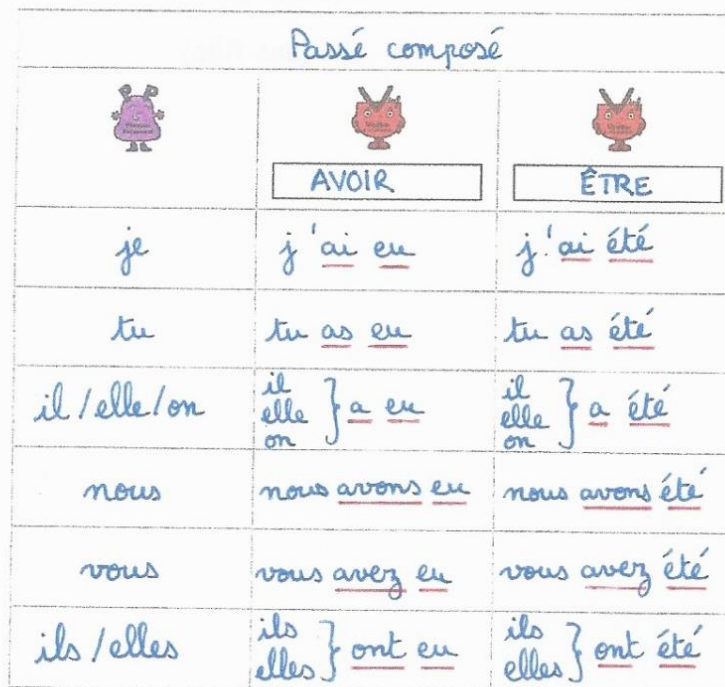 Passé composé
AVOIR ÊTRE
je j'ai eu j'ai été
tu tu as eu tu as été
il / elle / on il elle on } a eu il elle on } a été
nous nous avons eu nous avons été
vous vous avez eu vous avez été
ils / elles ils elles } ont eu ils elles } ont été